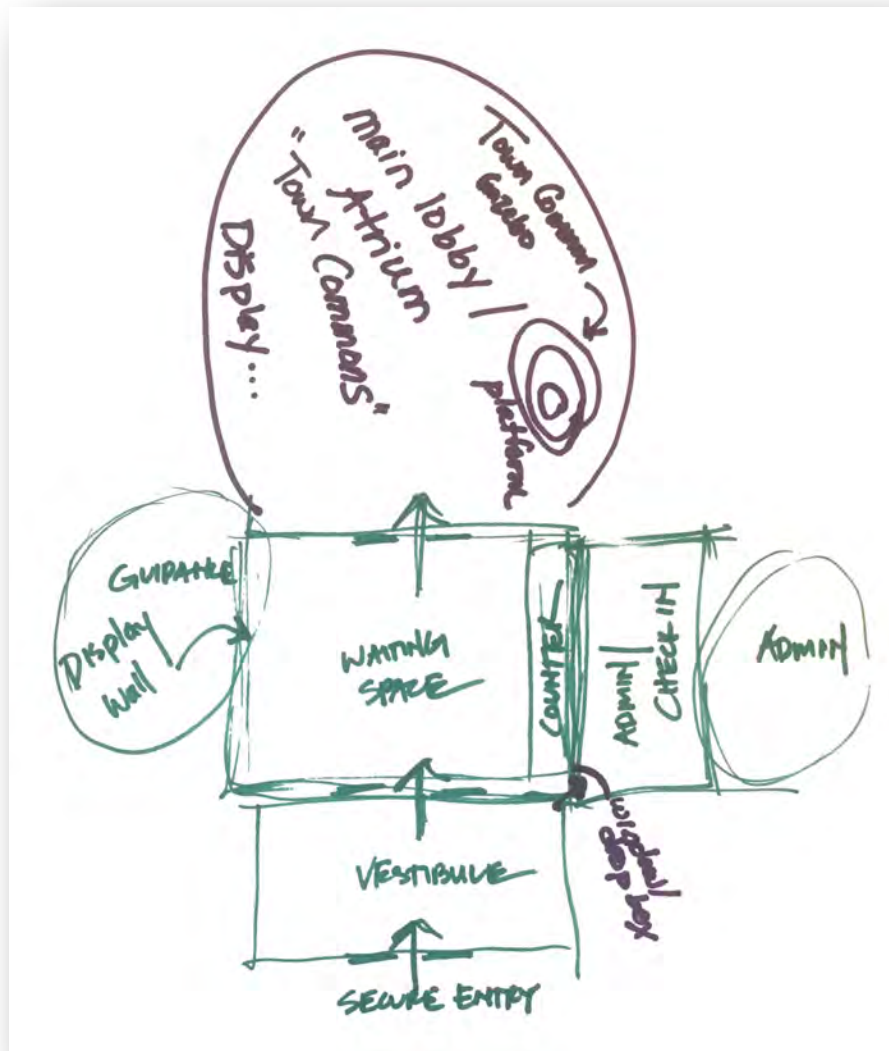 Town Common
Gazebo
main lobby /
Atrium
"Town Commons"
Display...
platform
GUIDANCE
Display
Wall
WAITING
SPACE
COUNTER
ADMIN/
CHECK IN
ADMIN
drop box
VESTIBULE
SECURE ENTRY